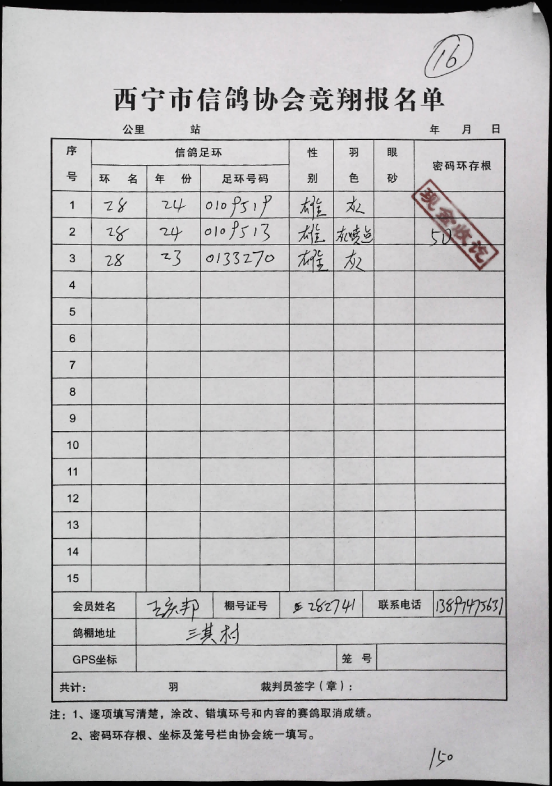 16
西宁市信鸽协会竞翔报名单
公里 站 年 月 日
序号 信鸽足环 性别 羽色 眼砂 密码环存根
环名 年份 足环号码
1 28 24 0109519 雄 灰
2 28 24 0109513 雄 灰 50
3 28 23 0133270 雄 灰
现金收讫
4
5
6
7
8
9
10
11
12
13
14
15
会员姓名 邦 棚号证号 282741 联系电话 13897475631
鸽棚地址 三其村
GPS坐标 笼号
共计: 羽 裁判员签字(章):
注:1、逐项填写清楚,涂改、错填环号和内容的赛鸽取消成绩。
2、密码环存根、坐标及笼号栏由协会统一填写。
150